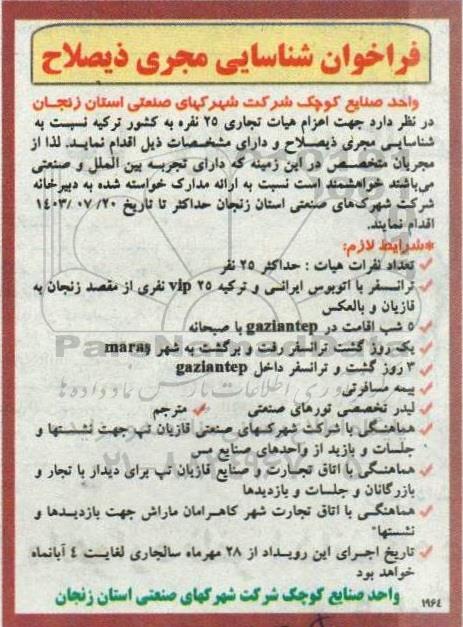 فراخوان شناسایی مجری ذیصلاح
واحد صنایع کوچک شرکت شهرکهای صنعتی استان زنجان
در نظر دارد جهت اعزام هیات تجاری ۲۵ نفره به کشور ترکیه نسبت به
شناسایی مجری ذیصلاح و دارای مشخصات ذیل اقدام نماید. لذا از
مجریان متخصص در این زمینه که دارای تجربه بین الملل و صنعتی
می‌باشند خواهشمند است نسبت به ارائه مدارک خواسته شده به دبیرخانه
شرکت شهرک‌های صنعتی استان زنجان حداکثر تا تاریخ ۱۴۰۳/۰۷/۲۰
اقدام نمایند.
*شرایط لازم:
✓ تعداد نفرات هیات : حداکثر ۲۵ نفر
✓ ترانسفر با اتوبوس ایرانی و ترکیه vip ۲۵ نفری از مقصد زنجان به
قازیان و بالعکس
✓ ۵ شب اقامت در gaziantep با صبحانه
✓ یک روز گشت ترانسفر رفت و برگشت به شهر maraş
✓ ۳ روز گشت و ترانسفر داخل gaziantep
✓ بیمه مسافرتی
✓ لیدر تخصصی تورهای صنعتی ✓ مترجم
✓ هماهنگی با شرکت شهرکهای صنعتی قازیان تپ جهت نشستها و
جلسات و بازید از واحدهای صنایع مس
✓ هماهنگی با اتاق تجارت و صنایع قازیان تپ برای دیدار با تجار و
بازرگانان و جلسات و بازدیدها
✓ هماهنگی با اتاق تجارت شهر کاهرامان ماراش جهت بازدیدها و
نشستها"
✓ تاریخ اجرای این رویداد از ۲۸ مهرماه سالجاری لغایت ۴ آبانماه
خواهد بود
واحد صنایع کوچک شرکت شهرکهای صنعتی استان زنجان
۱۹۶۴